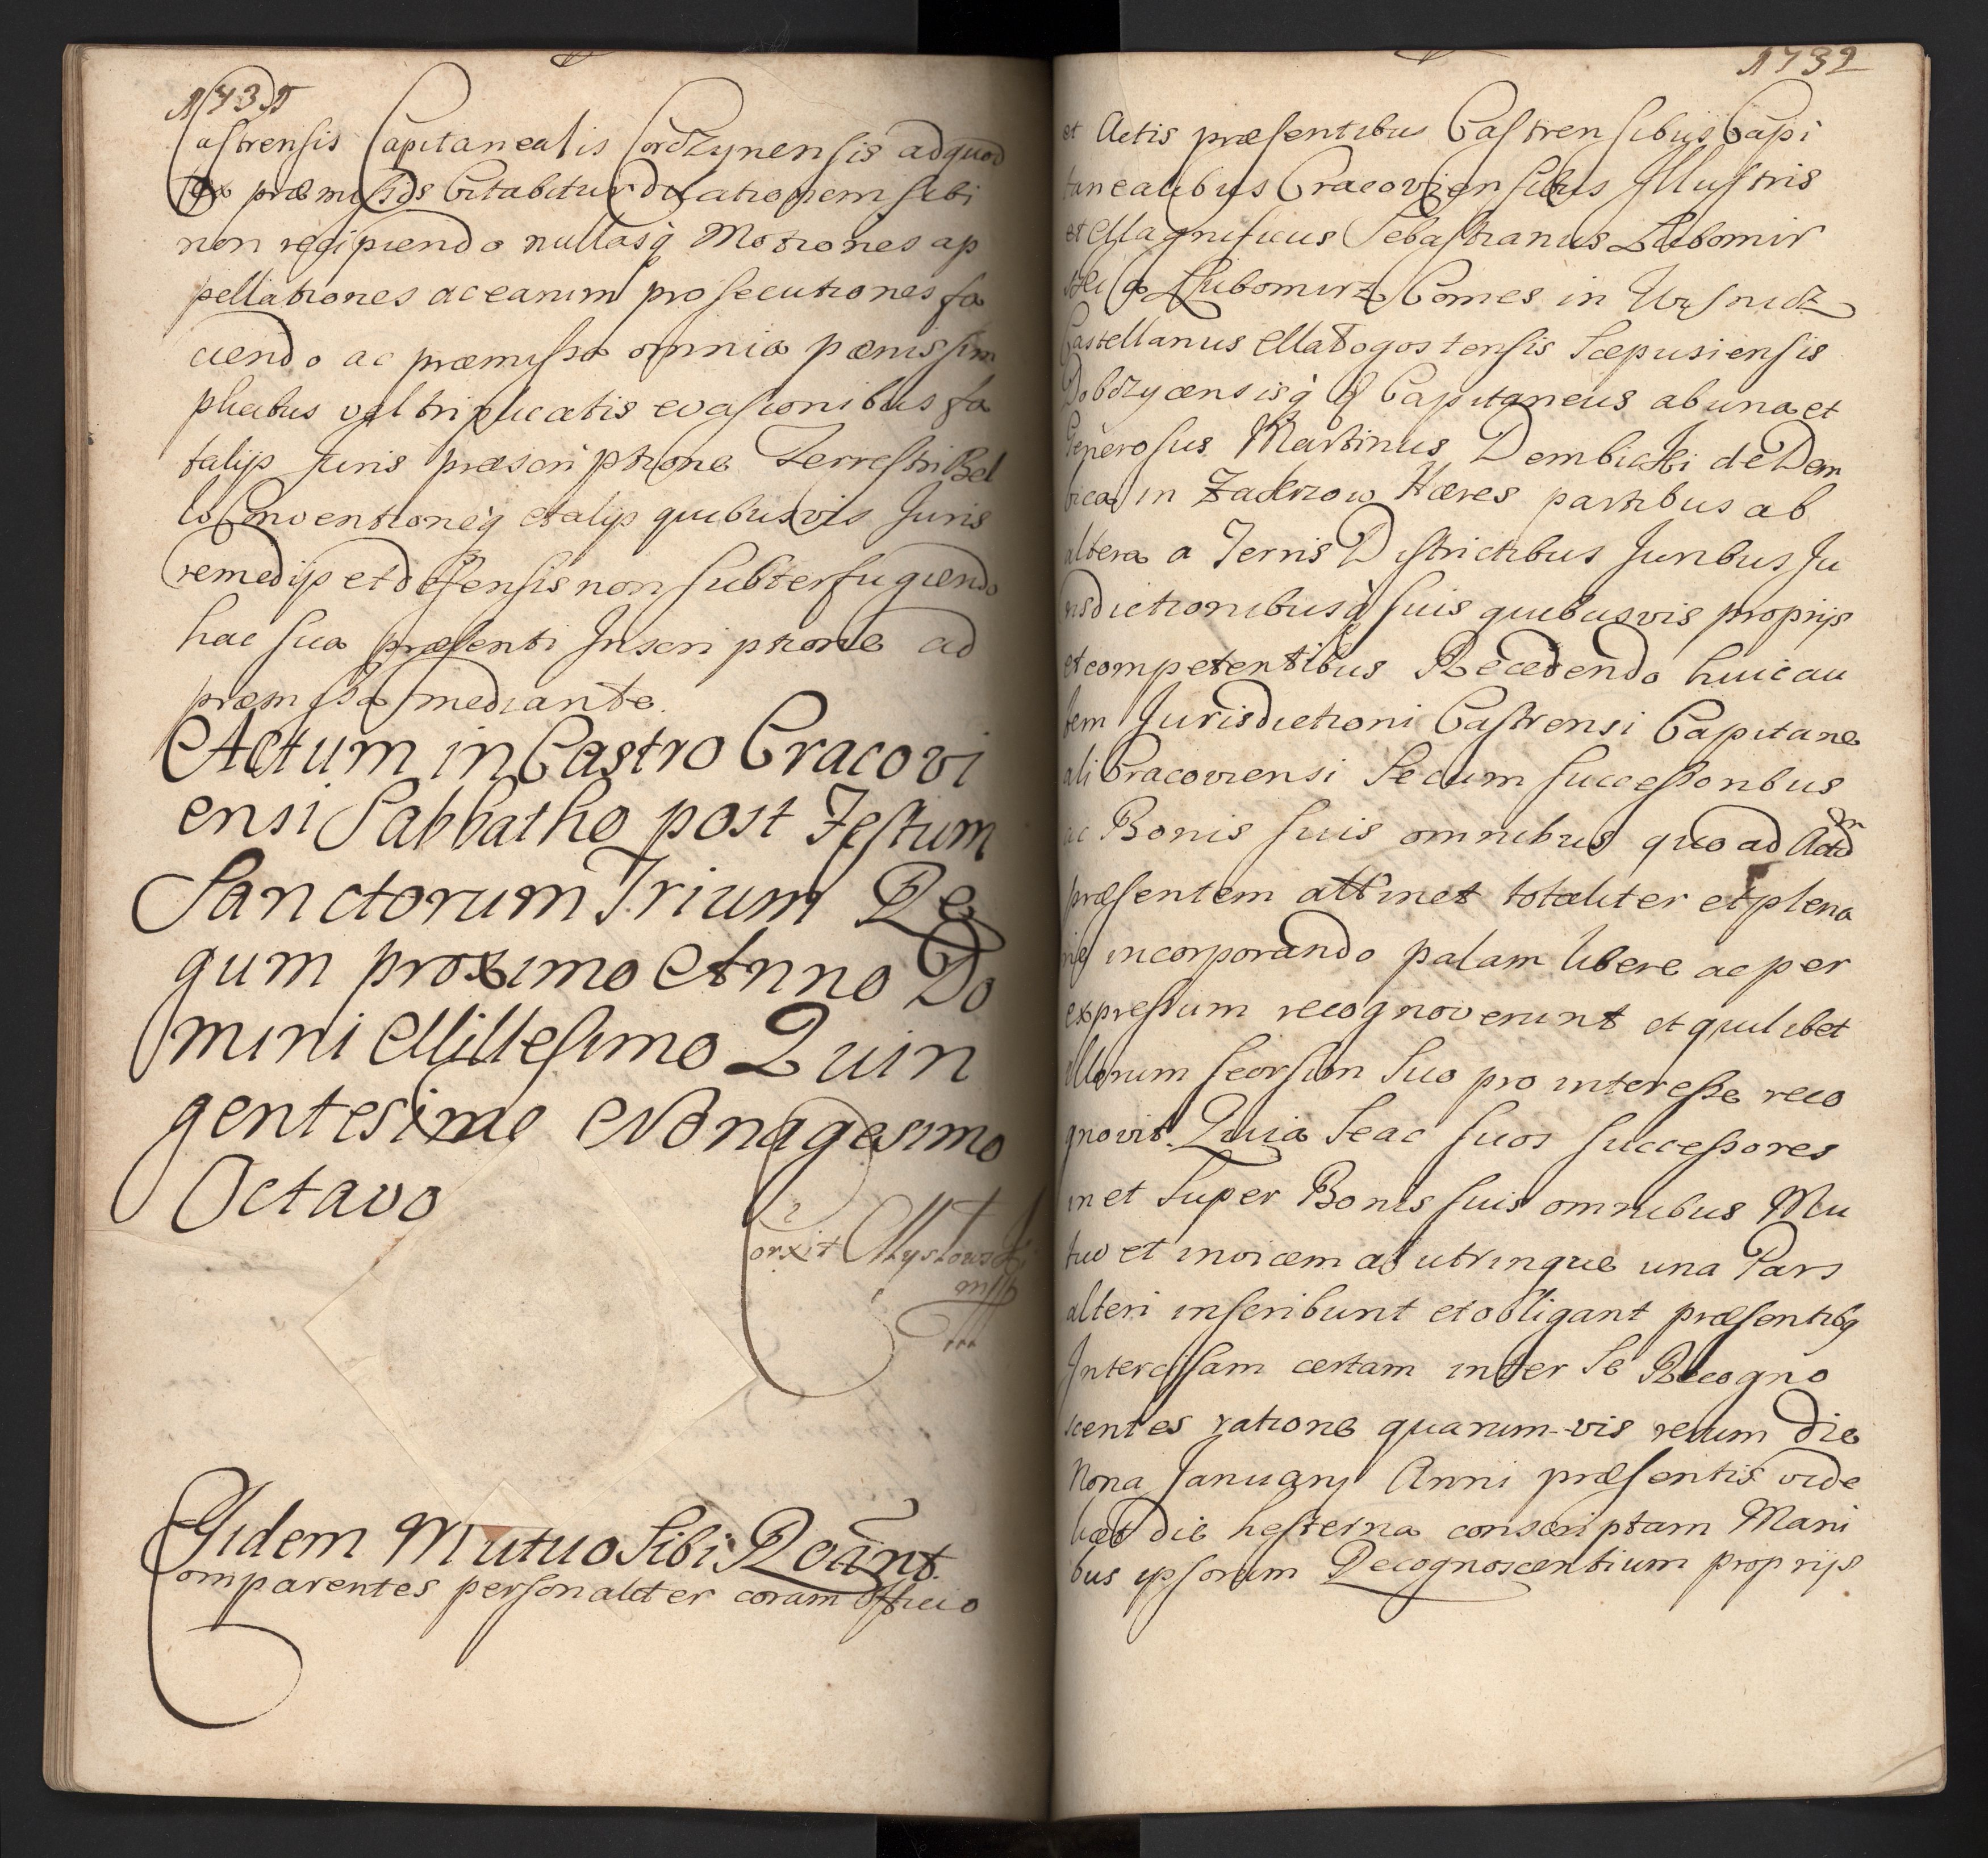 1731
Castrensis Capitanealis Cordzynensis ad quod
ex præmissis Citabitur dilationem sibi
non recipiendo nullasq̀ Motiones ap
pellationes ac earum prosecutiones fa
ciendo ac præmissa omnia pænis sim
plicibus vel triplicatis evasionibus fa
talijs Juris præscriptione Terrestri Bel
lo Conventioneq̀ et alijs quibusvis Juris
remedijs et defensis non subterfugiendo
hac sua præsenti Inscriptione ad
præmissa mediante.
Actum in Castro Cracovi
ensi Sabbatho post Festum
Sanctorum Trium Re
gum proximo Anno Do
mini Millesimo Quin
gentesimo Nonagesimo
Octavo
Corxit
mpp
Ijdem Mutuo Sibi Recānt.
Comparentes personaliter coram Officio
1732
et Actis præsentibus Castrensibus Capi
tanealibus Cracoviensibus Illustris
et Magnificus Sebastianus Lubomir
ski a Lubomirz Comes in Wysnicz
Castellanus Małogostensis Scepusiensis
Dobczycensisq̀ & Capitaneus ab una et
Generosus Martinus Dembicki de Dem
bica in Zaderzow Hæres partibus ab
altera a Terris Districtibus Juribus Ju
risdictionibusq̀ suis quibusvis proprijs
et competentibus Recedendo huic au
tem Jurisdictioni Castrensi Capitane
ali Cracoviensi Se cum successoribus
ac Bonis suis omnibus quo ad Actum
præsentem attinet totaliter et plena
rie incorporando palam libere ac per
expressum recognoverunt et quilibet
illorum seorsim Suo pro interesse reco
gnovit. Quia Se ac suos successores
in et super Bonis suis omnibus Mu
tuo et invicem ab utrinque una Pars
alteri inscribunt et obligant præsentibq
Intercissam certam inter Se Recogno
scentes ratione quarum-vis rerum die
Nona Januarij Anni præsentis vide
licet die hesterna conscriptam Mani
bus ipsorum Recognoscentium proprijs